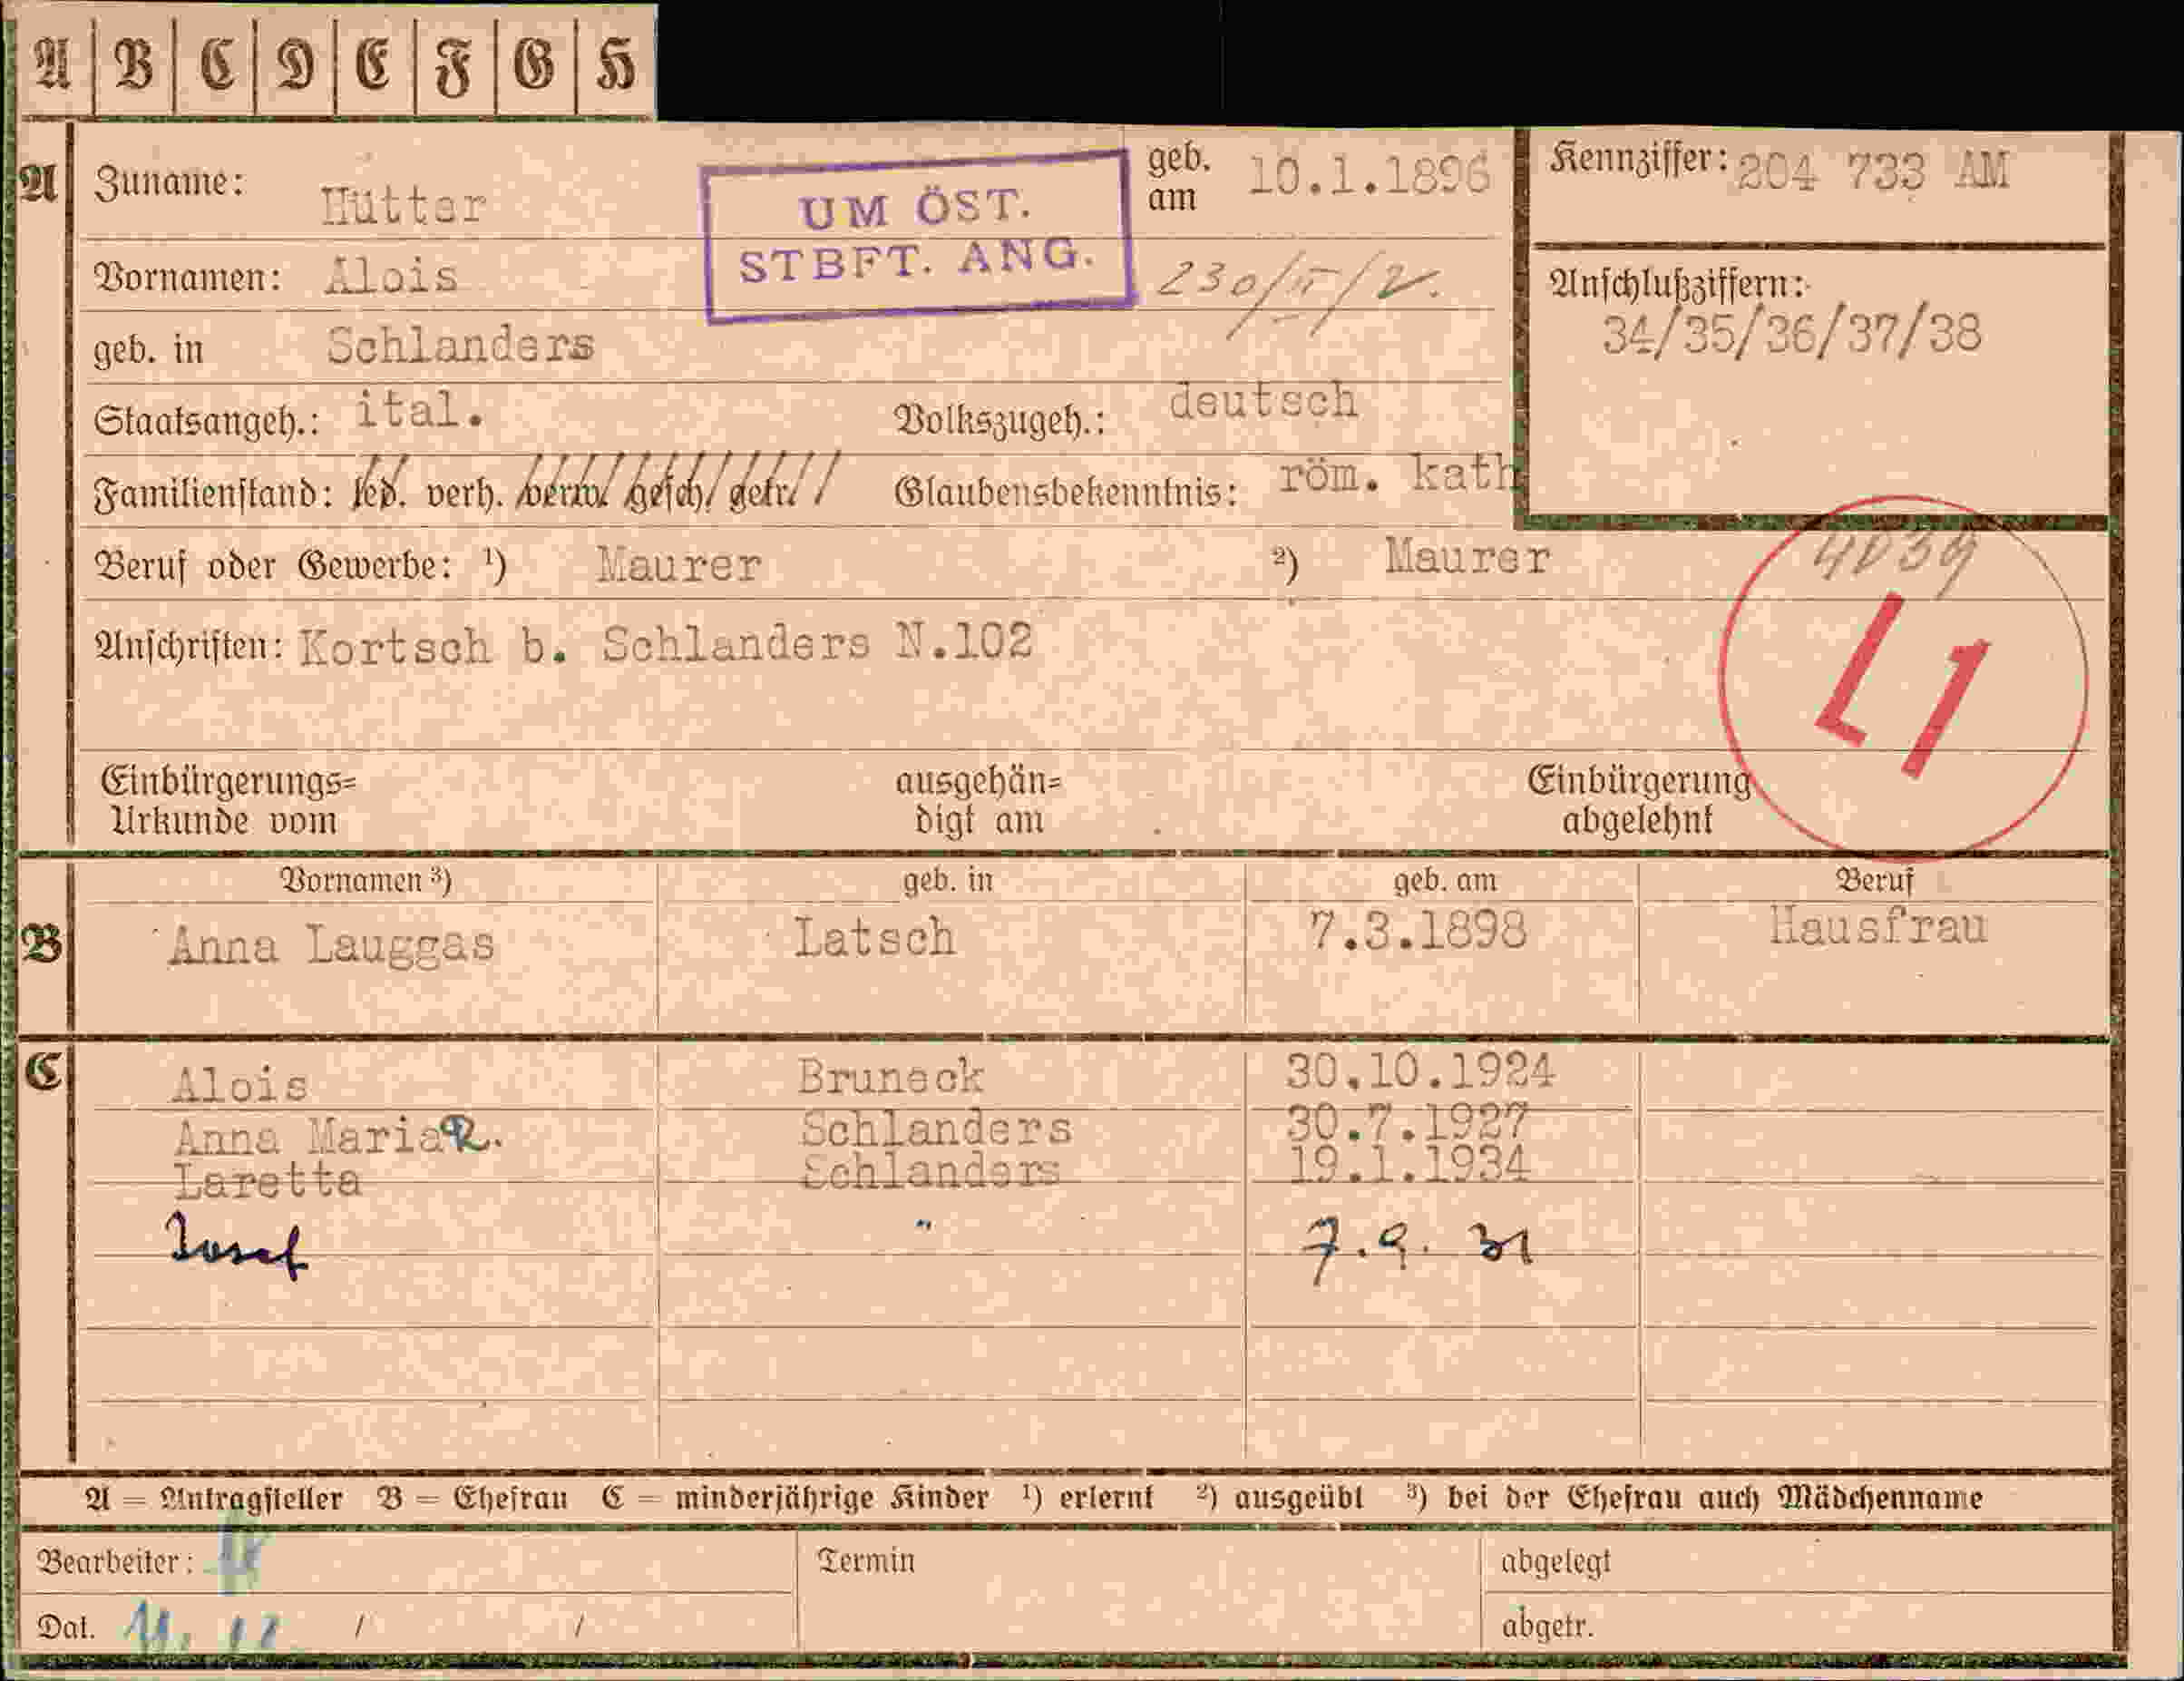 A B C D E F G H
A Zuname: Hütter geb. am 10.1.1896 Kennziffer: 204 733 AM
UM ÖST.
STBFT. ANG.
Vornamen: Alois 230/II/2.
Anschlußziffern:
34/35/36/37/38
geb. in Schlanders
Staatsangeh.: ital. Volkszugeh.: deutsch
Familienstand: led. verh. verw. gesch. getr. Glaubensbekenntnis: röm. kath
Beruf oder Gewerbe: 1) Maurer 2) Maurer
4039
L1
Anschriften: Kortsch b. Schlanders N.102
Einbürgerungs= ausgehän= Einbürgerung
Urkunde vom digt am abgelehnt
Vornamen 3) geb. in geb. am Beruf
B Anna Lauggas Latsch 7.3.1898 Hausfrau
C Alois Bruneck 30.10.1924
Anna Maria R. Schlanders 30.7.1927
Laretta Schlanders 19.1.1934
Josef " 7.9.31
A = Antragsteller B = Ehefrau C = minderjährige Kinder 1) erlernt 2) ausgeübt 3) bei der Ehefrau auch Mädchenname
Bearbeiter: Termin abgelegt
Dat. 11. 12 / / abgetr.